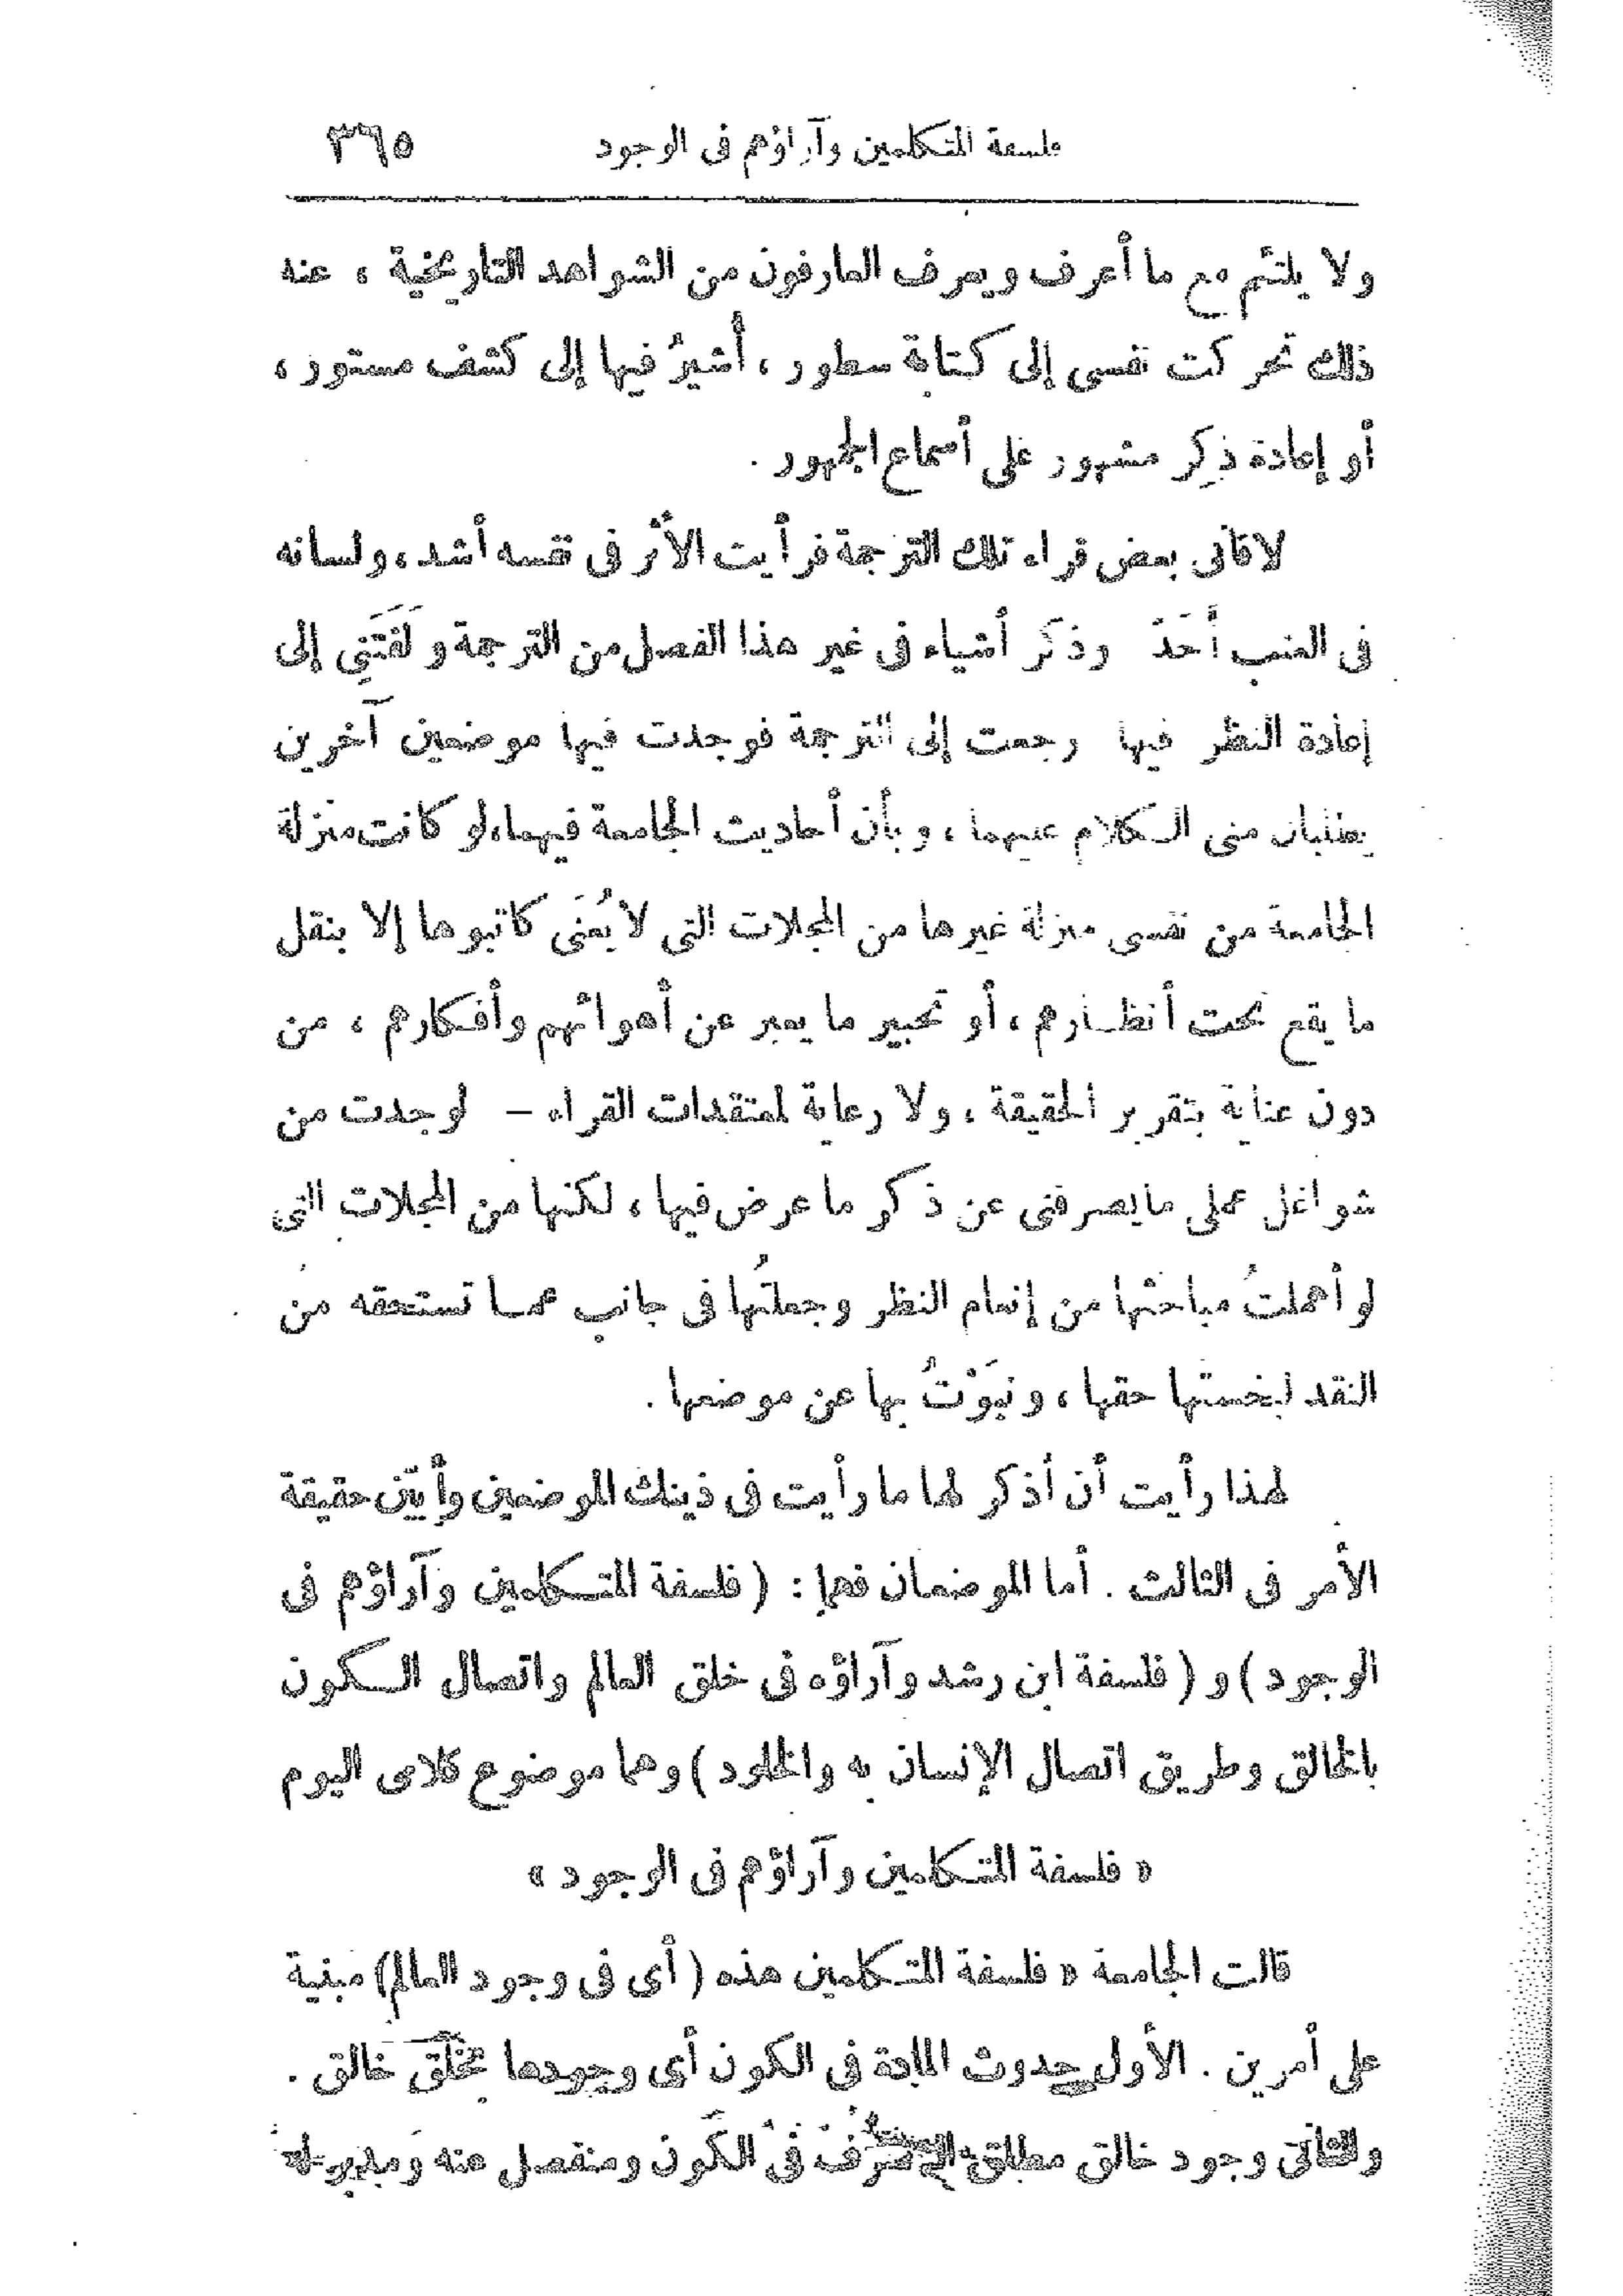 فلسفة المتكلمين وآراؤهم فى الوجود ٣٦٥
ولا يلتئم مع ما أعرف ويعرف العارفون من الشواهد التاريخية ، عنه
ذلك تحركت نفسى إلى كتابة سطور ، أشيرُ فيها إلى كشف مستور ،
أو إعادة ذِكر مشهور على أسماع الجمهور .
لاقانى بعض قراء تلك الترجمة فرأيت الأثر فى نفسه أشد ، ولسانه
فى العتب أَحَدّ وذكر أشياء فى غير هذا الفصل من الترجمة ولَفَتَنِى إلى
إعادة النظر فيها رجعت إلى الترجمة فوجدت فيها موضعين آخرين
يطلبان منى الكلام عليهما ، وبأن أحاديث الجامعة فيهما، لو كانت منزلة
الجامعة من نفسى منزلة غيرها من المجلات التى لا يُعْنَى كاتبوها إلا بنقل
ما يقع تحت أنظارهم ، أو تحبير ما يعبر عن أهوائهم وأفكارهم ، من
دون عناية بتقرير الحقيقة ، ولا رعاية لمعتقدات القراء – لوجدت من
شواغل عملى ما يصرفنى عن ذكر ما عرض فيها ، لكنها من المجلات التى
لو أهملتُ مباحثها من إنعام النظر وجعلتُها فى جانب عما تستحقه من
النقد لبخستها حقها ، ونبَوْتُ بها عن موضعها .
لهذا رأيت أن أذكر لها ما رأيت فى ذينك الموضعين وأبيّن حقيقة
الأمر فى الثالث . أما الموضعان فهما : ( فلسفة المتكلمين وآراؤهم فى
الوجود ) و ( فلسفة ابن رشد وآراؤه فى خلق العالم واتصال الكون
بالخالق وطريق اتصال الإنسان به والخلود ) وهما موضوع كلامى اليوم
« فلسفة المتكلمين وآراؤهم فى الوجود »
قالت الجامعة « فلسفة المتكلمين هذه ( أى فى وجود العالم ) مبنية
على أمرين . الأول حدوث المادة فى الكون أى وجودها بخلق خالق .
والثانى وجود خالق مطلق التصرف فى الكون ومنفصل عنه ومدبر له